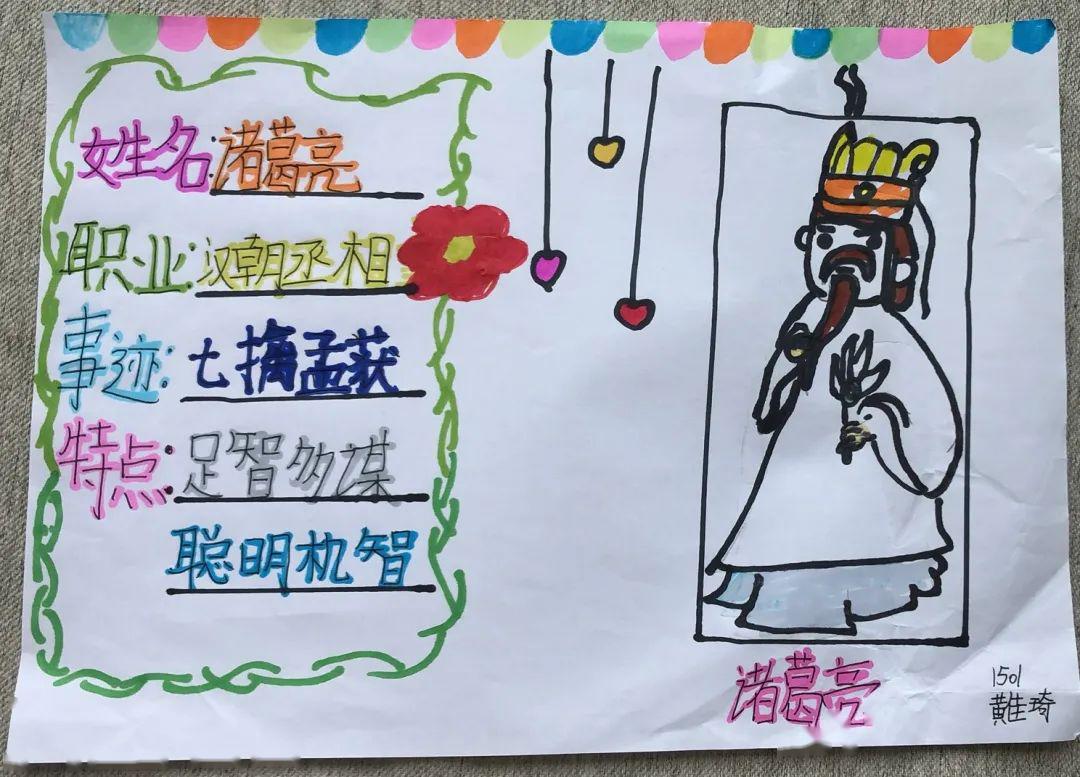 姓名:诸葛亮
职业:汉朝丞相
事迹:七擒孟获
特点:足智多谋
聪明机智
诸葛亮
1501
黄佳琦